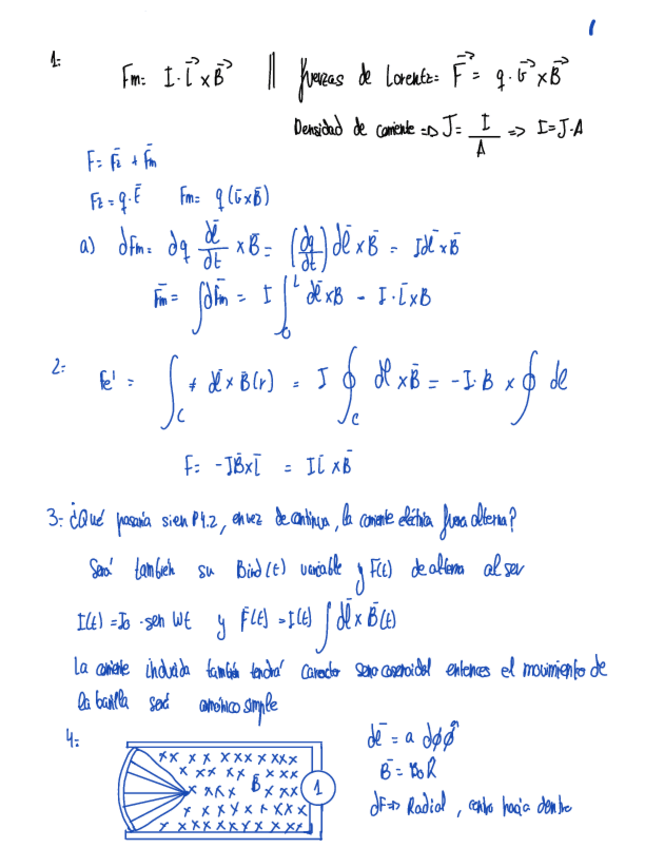 1
1:
Fm = I · l⃗ x B⃗ || fuerzas de Lorentz = F⃗ = q · v⃗ x B⃗
Densidad de corriente => J = I/A => I = J·A
F = F̄e + F̄m
Fe = q · Ē   Fm = q (v̄ x B̄)
a) dFm = dq dl̄/dt x B̄ = (dq/dt) dl̄ x B̄ = Idl̄ x B̄
F̄m = ∫ dF̄m = I ∫₀ᴸ dl̄ x B - I · l̄ x B
2:
Fe' = ∫_C dl̄ x B(r) = I ∮_C dl x B̄ = - I · B x ∮ dl
F = - IB̄ x l̄ = I l x B̄
3- ¿Qué pasaría si en P4.2, en vez de continua, la corriente eléctrica fuera alterna?
Será también su Bind(t) variable y F(t) de alterna al ser
I(t) = I₀ · sen Wt y F̄(t) = I(t) ∫ dl̄ x B̄(t)
La corriente inducida también tendrá caracter entonces el movimiento de
la barilla será armónico simple
4:
xx x x xxx x xxx
xx xx B xxx
1
dl̄ = a dϕ ϕ̂
B̄ = B₀ R
dF => Radial, hacia dentro